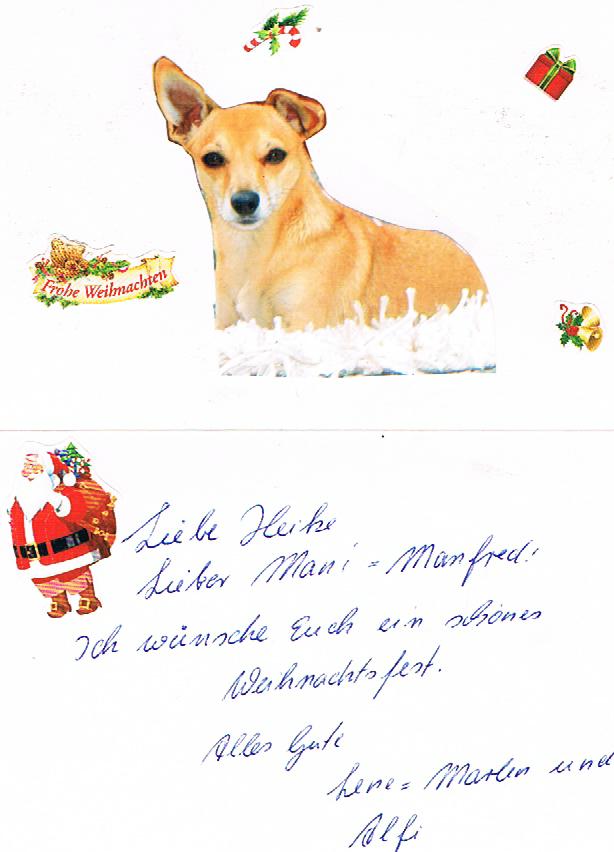 Frohe Weihnachten
Liebe Heike
Lieber Mani = Manfred!
Ich wünsche Euch ein schönes
Weihnachtsfest.
Alles Gute
Lene = Marlen und
Alfi